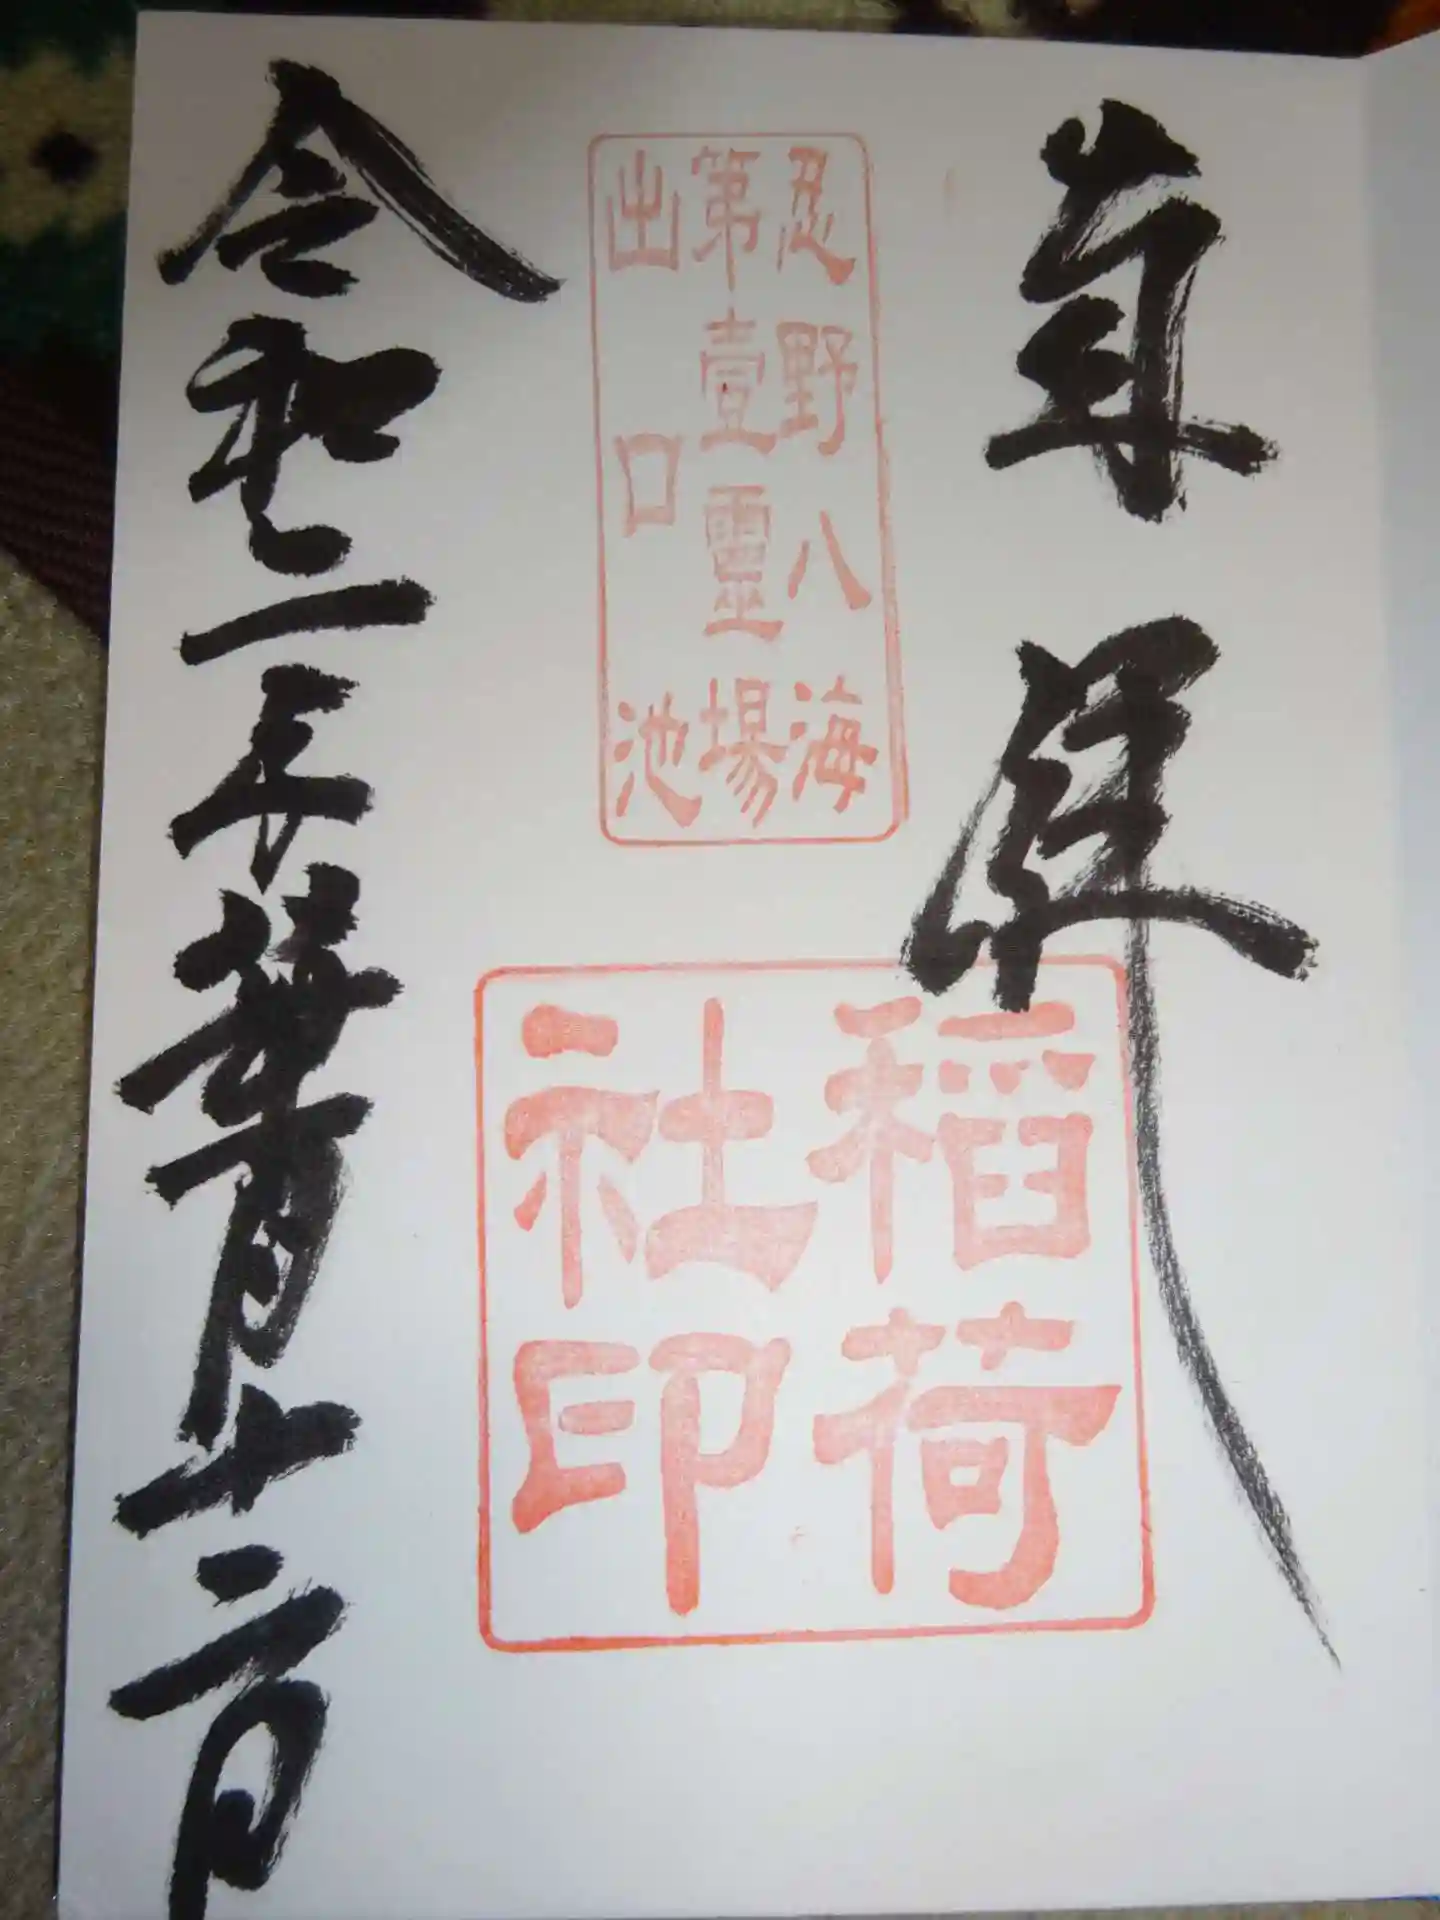 奉拝
忍野八海
第壹靈場
出口池
稻荷
社印
令和二年葉月十二日